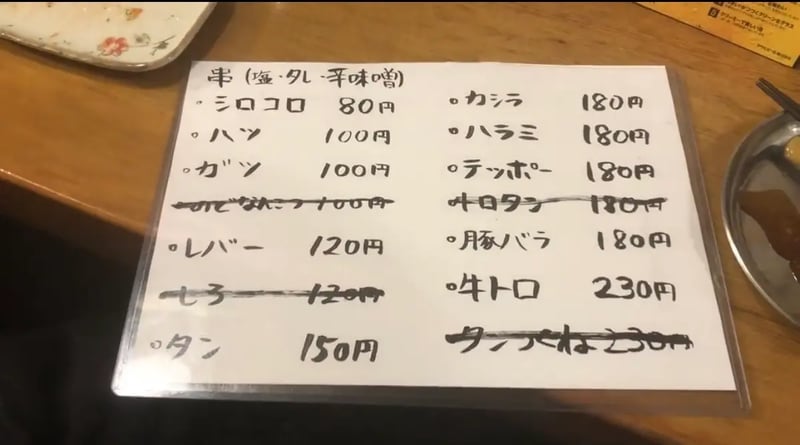 串(塩・タレ・辛味噌)
・シロコロ 80円
・ハツ 100円
・ガツ 100円
のどなんこつ 100円
・レバー 120円
しろ 120円
・タン 150円
・カシラ 180円
・ハラミ 180円
・テッポー 180円
牛ロタン 180円
・豚バラ 180円
・牛トロ 230円
タンつくね 230円